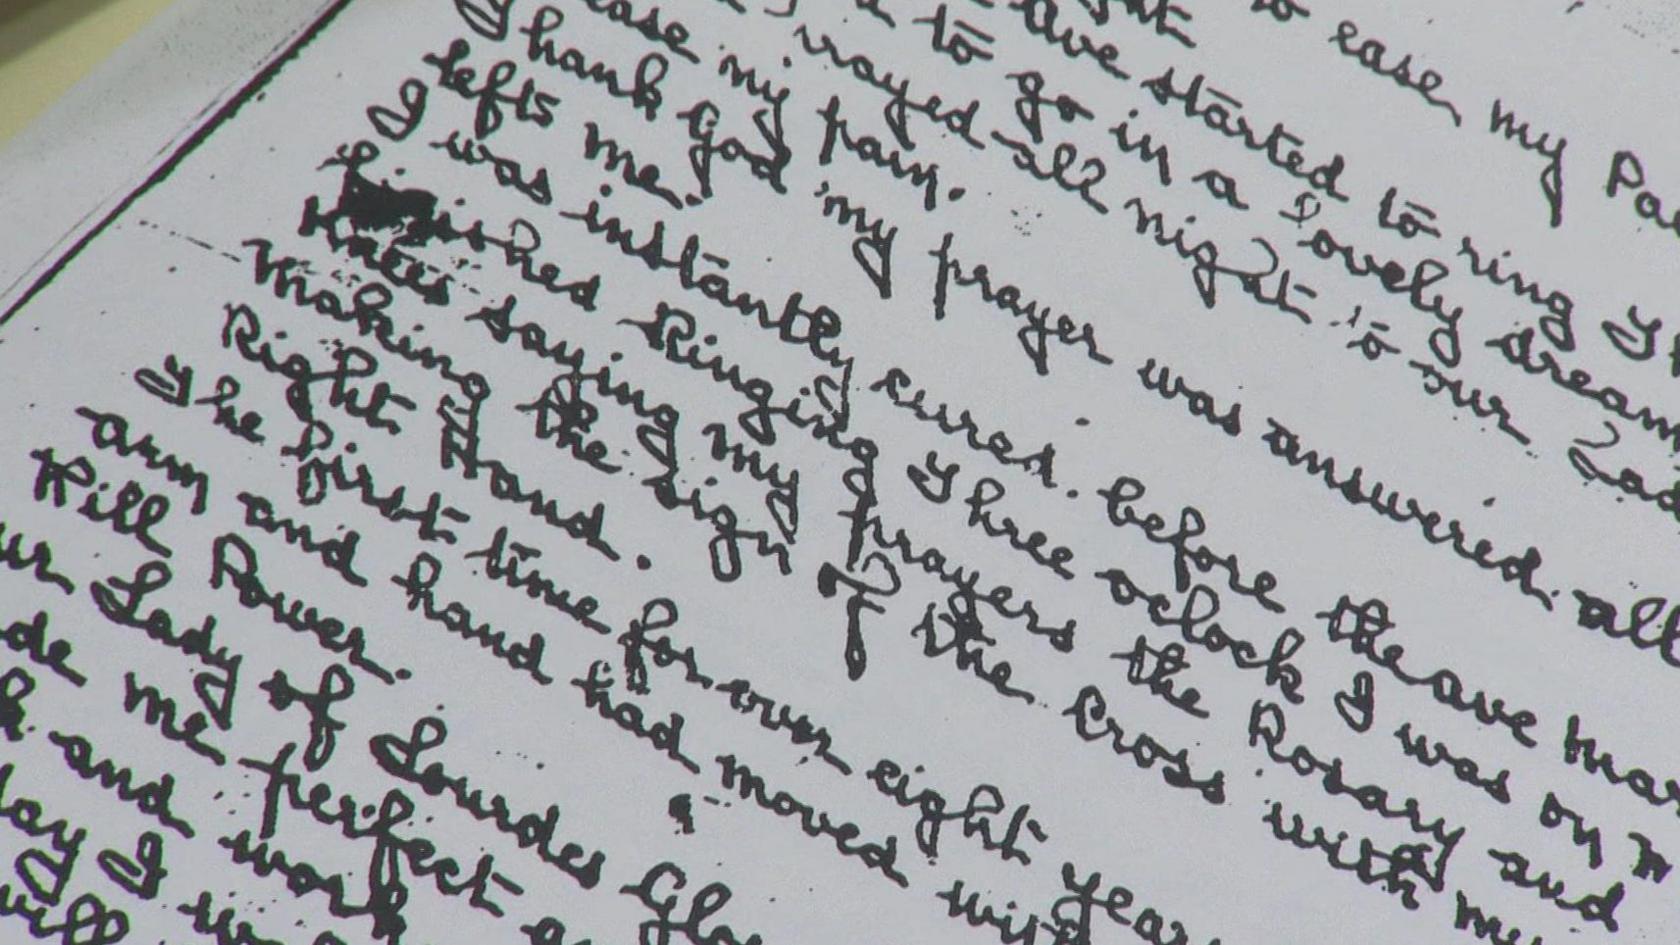 to ease my Pa
ave started to ring
to go in a Lovely dream
rayed all night to our Lad
ease my pain.
Thank God my prayer was answered. all
lefts me.
I was instantly cured. before theave mar
ished Ringing Three oclock I was on m
Knees saying my prayers the Rosary and
making the sign of the Cross with my
Right Hand.
The first time for over eight year
arm and hand had moved
Will Power.
ur Lady of Lourdes Glo
de me perfect a
and work
day I
will